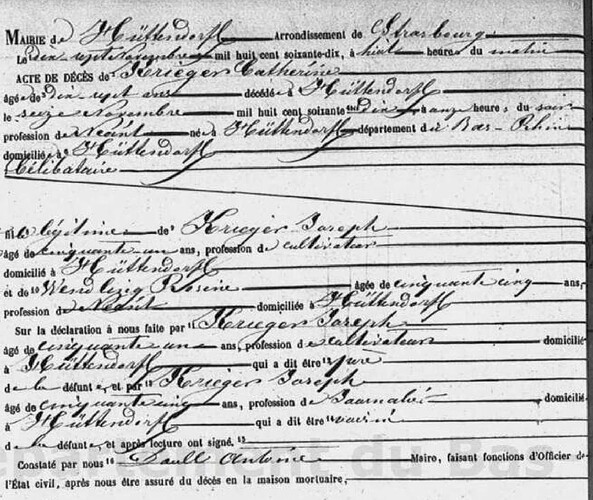 MAIRIE de Hüttendorf Arrondissement de Strasbourg
Le dix sept Novembre mil huit cent soixante-dix, à huit heures du matin
ACTE DE DÉCÈS de Krieger Catherine
âgée de dix sept ans décédée à Hüttendorf
le seize Novembre mil huit cent soixante dix à onze heures du soir
profession de Néant née à Hüttendorf département du Bas-Rhin
domiciliée à Hüttendorf
Célibataire
fille légitime de Krieger Joseph
âgé de cinquante un ans, profession de cultivateur
domicilié à Hüttendorf
et de 10 Wendling Rosine âgée de cinquante cinq ans,
profession de Néant domiciliée à Hüttendorf
Sur la déclaration à nous faite par 11 Krieger Joseph
âgé de cinquante un ans, profession de cultivateur domicilié
à Hüttendorf qui a dit être 12 père
de la défunte, et par 13 Krieger Joseph
âgé de cinquante cinq ans, profession de Journalier domicilié
à Hüttendorf qui a dit être voisin
de la défunte, et après lecture ont signé. 15
Constaté par nous 16 Daull Antoine Maire, faisant fonctions d'Officier de
l'État civil, après nous être assuré du décès en la maison mortuaire,
du Bas